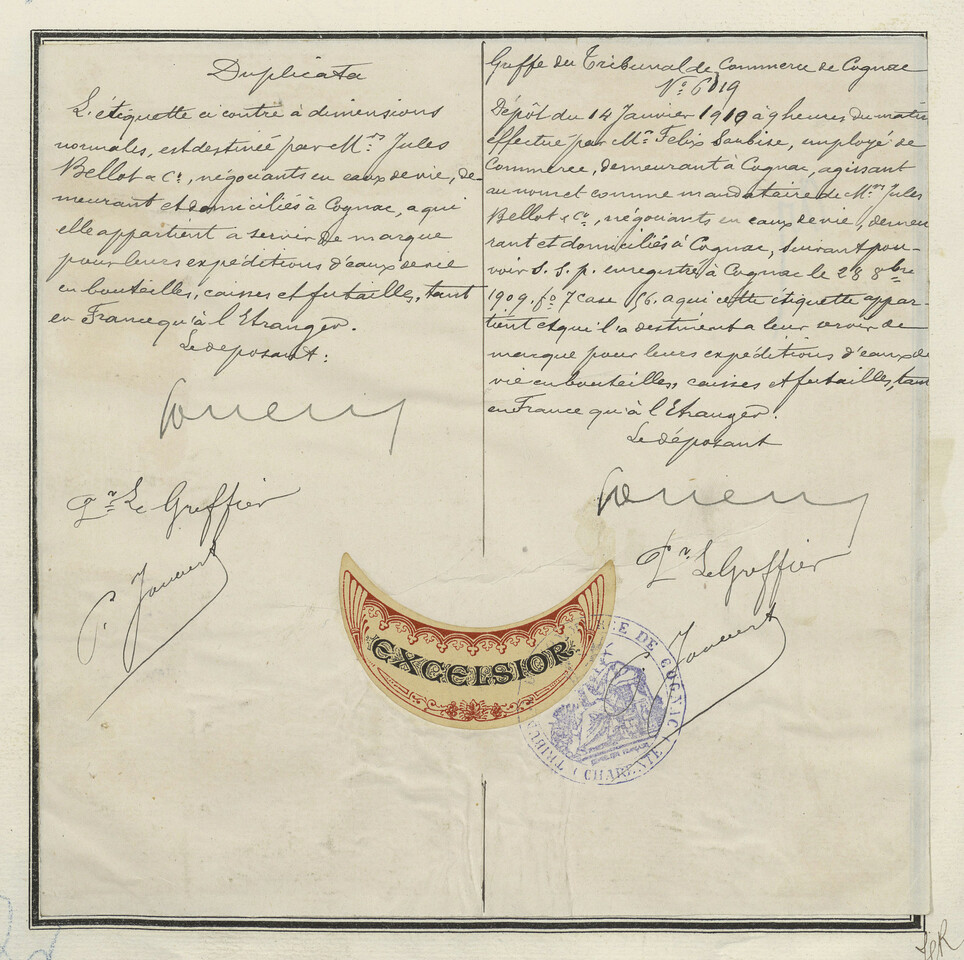 Duplicata
L'étiquette ci contre à dimensions
normales, est destinée par M.rs Jules
Bellot & Cie, négociants en eaux de vie, de-
meurant et domiciliés à Cognac, a qui
elle appartient a servir de marque
pour leurs expéditions d'eaux de vie
en bouteilles, caisses et futailles, tant
en France qu'à l'Etranger.
Le déposant:
Pr Le Greffier
Greffe du Tribunal de Commerce de Cognac
No 6019
Dépôt du 14 Janvier 1910 à 9 heures du matin
effectué par Mr Felix Soubise, employé de
Commerce, demeurant à Cognac, agissant
au nom et comme mandataire de M.rs Jules
Bellot & Cie, négociants en eaux de vie, demeu
rant et domiciliés à Cognac, suivant pou-
voir S. S. p. enregistré à Cognac le 28 8bre
1909. fo 7 case 56. a qui cette étiquette appar-
tient et qui l'a destinent a leur servir de
marque pour leurs expéditions d'eaux de
vie en bouteilles, caisses et futailles, tant
en France qu'à l'Etranger.
Le déposant
Pr Le Greffier
EXCELSIOR
DE COGNAC
CHARENTE